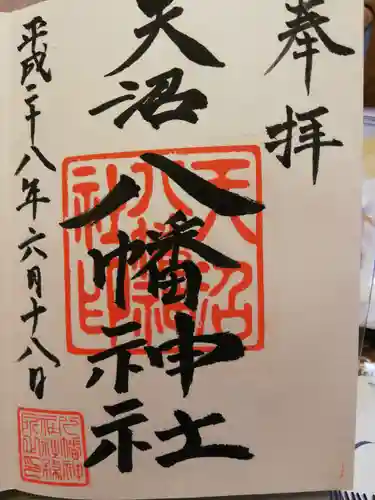 奉拝
天沼八幡神社
平成二十八年六月十八日
天沼八幡神社印